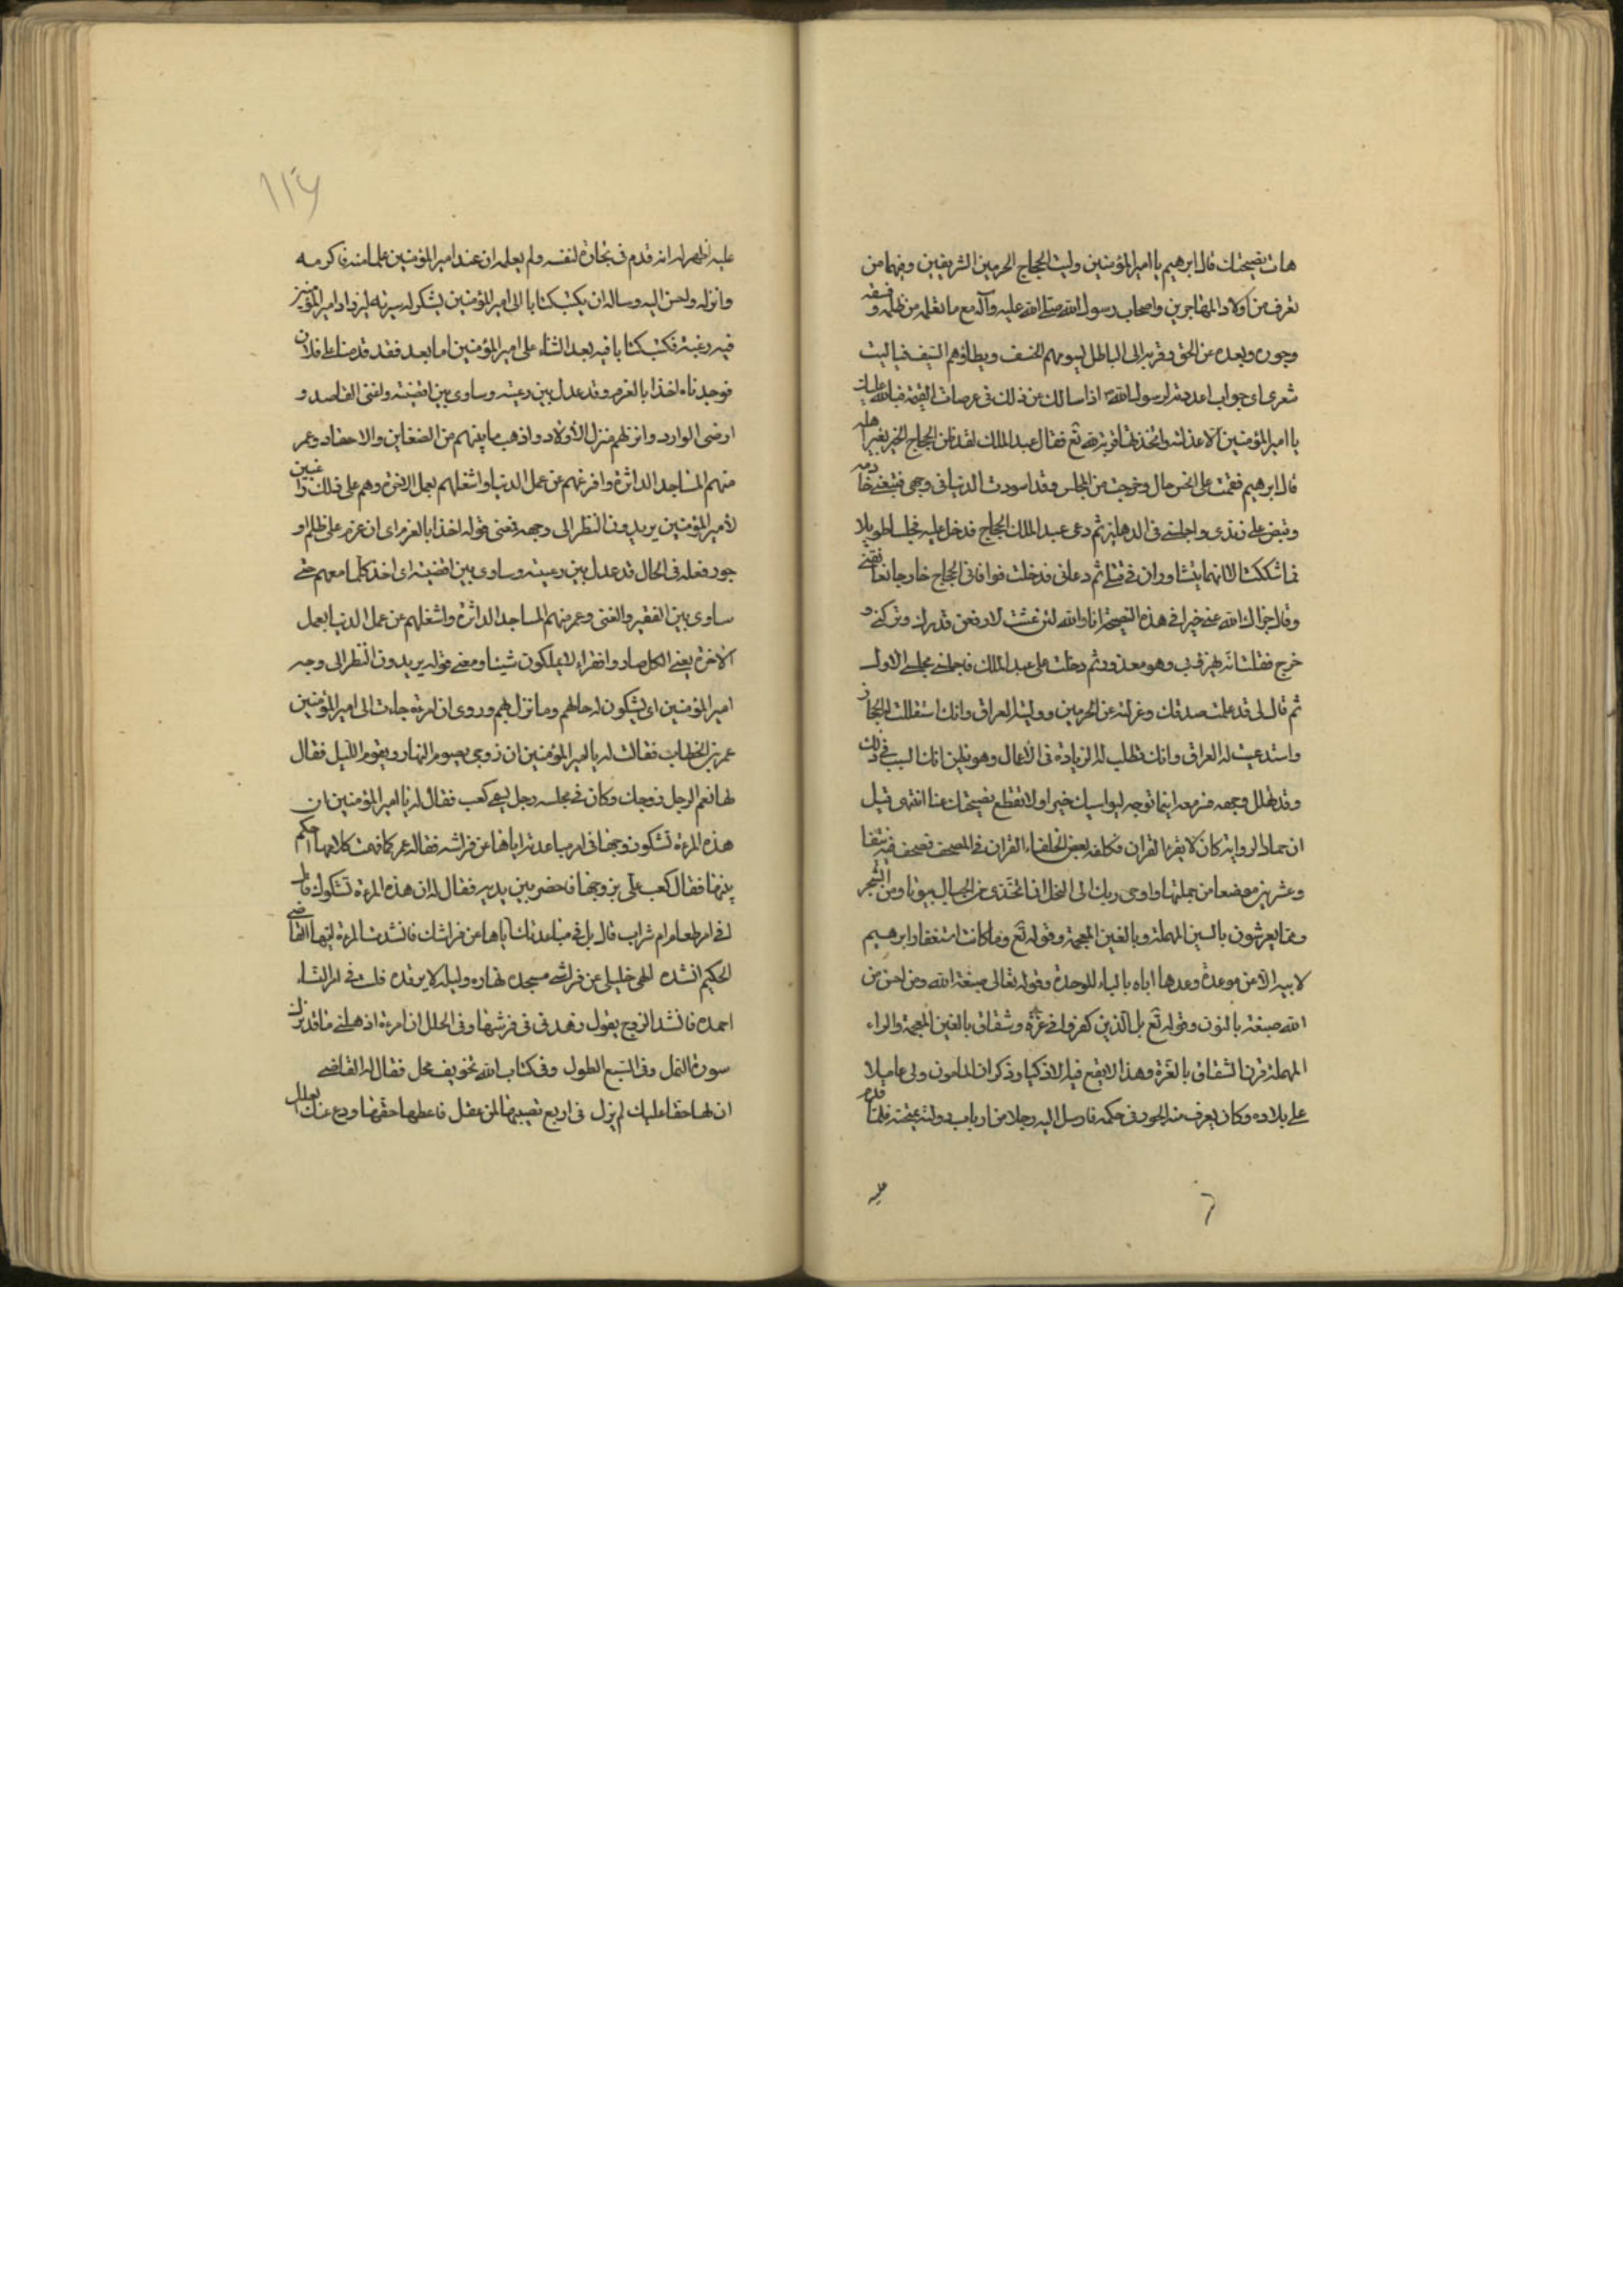 هات نصيحتك قال ابرهيم يا امير المؤمنين وليت الحجاج الحرمين الشريفين وفيهما من
تعرف من اولاد المهاجرين واصحاب رسول الله صلى الله عليه وآله مع ما تعلمه من ظلمه وفسقه و
وجوره وبعده عن الحق وقربه الى الباطل يسومهم الخسف ويطاؤهم السيف فياليت
شعرى اى جواب اعددته لرسول الله اذا سالك عن ذلك فى عرصات القيمة فبالله عليك
يا امير المؤمنين الا عزلته واتخذتها قربة لله تع فقال عبد الملك لقد ظن الحجاج الخير بغير اهله
قال ابرهيم فقمت على اخس حال وخرجت من المجلس وقد اسودت الدنيا فى وجهى فتبعنى خادمه
وقبض على زندى واجلسنى فى الدهليز ثم دعى عبد الملك الحجاج فدخل عليه فجلسا طويلا
فما شككت الا انهما يتشاوران فى قتلى ثم دعانى فدخلت فوافانى الحجاج خارجا فعانقنى
وقال جزاك الله عنى خيرا فى هذه النصيحة اما والله لئن عشت لارفعن قدرك وتركنى و
خرج فقلت انه يهزء بى وهو معذور ثم دخلت على عبد الملك فاجلسنى مجلسى الاول
ثم قال لى قد علمت صدقك وعزلته عن الحرمين ووليته العراق وانك استقللت له الحجاز
واستدعيت له العراق وانك تطلب له الزيادة فى الاعمال وهو يظن انك السبب فى ذلك
وقد تهلل وجهه فسر معه اينما توجه ليواسيك خيرا ولا تقطع نصيحتك عنا انتهى قيل
ان حماد الراوية كان لا يقرء القران فكلفه بعض الخلفاء القران فى المصحف فصحف فيه نيفا
وعشرين موضعا من جملتها واوحى ربك الى النحل ان اتخذى من الجبال بيوتا ومن الشجر
ومما يعرشون بالسين المهملة وبالغين المعجمة وقوله تع وما كان استغفار ابرهيم
لابيه الا عن موعدة وعدها اباه بالباء الموحدة وقوله تعالى صبغة الله ومن احسن من
الله صبغة بالنون وقوله تع بل الذين كفروا فى عزة وشقاق بالغين المعجمة والراء
المهملة قرن الشقاق بالغرة وهذا لا يقع فيه الاذكيا وذكر ان المامون ولى عاملا
على بلاده وكان يعرف منه الجور فى حكمه فارسل اليه رجلا من ارباب دولته يمتحنه فلما قدم
عليه
عليه اظهر له انه قدم فى تجارة لنفسه ولم يعلمه ان عند امير المؤمنين علما منه فاكرمه
وانزله واحسن اليه وساله ان يكتب كتابا الى امير المؤمنين يشكو له سيرته ليزداد امير المؤمنين
فيه رغبة فكتب كتابا فيه بعد الثناء على امير المؤمنين اما بعد فقد قدمنا على فلان
فوجدناه اخذا بالعزم وقد عدل بين رعيته وساوى بين اقضيته واغنى القاصد و
ارضى الوارد وانزلهم منزل الاولاد واذهب ما بينهم من الضغاين والاحقاد وعمر
منهم المساجد الداثرة وافرغهم عن عمل الدنيا واشغلهم بعمل الاخرة وهم على ذلك داعين
لامير المؤمنين يريدون النظر الى وجهه فعنى قوله اخذا بالعزم اى ان عزم على ظلم او
جور فعله فى الحال قد عدل بين رعيته وساوى بين اقضيته اى اخذ كلما معهم حتى
ساوى بين الفقير والغنى وعمر منهم المساجد الداثرة واشغلهم عن عمل الدنيا بعمل
الاخرة يعنى الكل صاروا فقراء لا يملكون شيئا ومعنى قوله يريدون النظر الى وجه
امير المؤمنين اى يشكون له حالهم وما نزل بهم وروى ان امرءة جاءت الى امير المؤمنين
عمر بن الخطاب فقالت له يا امير المؤمنين ان زوجى يصوم النهار ويقوم الليل فقال
لها نعم الرجل زوجك وكان فى مجلسه رجل يسمى كعب فقال له يا امير المؤمنين ان
هذه المرءة تشكو زوجها فى امر مباعدته اياها عن فراشه فقال له عمر كما فهمت كلامها احكم
بينهما فقال كعب على بزوجها فاحضر بين يديه فقال له ان هذه المرءة تشكوك قال
افى امر طعام ام شراب قال بل فى مباعدتك اياها عن فراشك فانشدت المرءة ايها القاضى
الحكيم انشده الهى خليلى عن فراشى مسجده نهاره وليله لا يرقده فلست فى امر النساء
احمده فانشد الزوج يقول زهدنى فى فرشها وفى الحلل انا امرءة اذهلنى ما قد نزل
سورة النمل وفى السبع الطول وفى كتاب الله تخويف يحل فقال له القاضى
ان لها حقا عليك لم يزل فى اربع نصيبها لمن عقل فاعطها حقها ودع عنك العلل